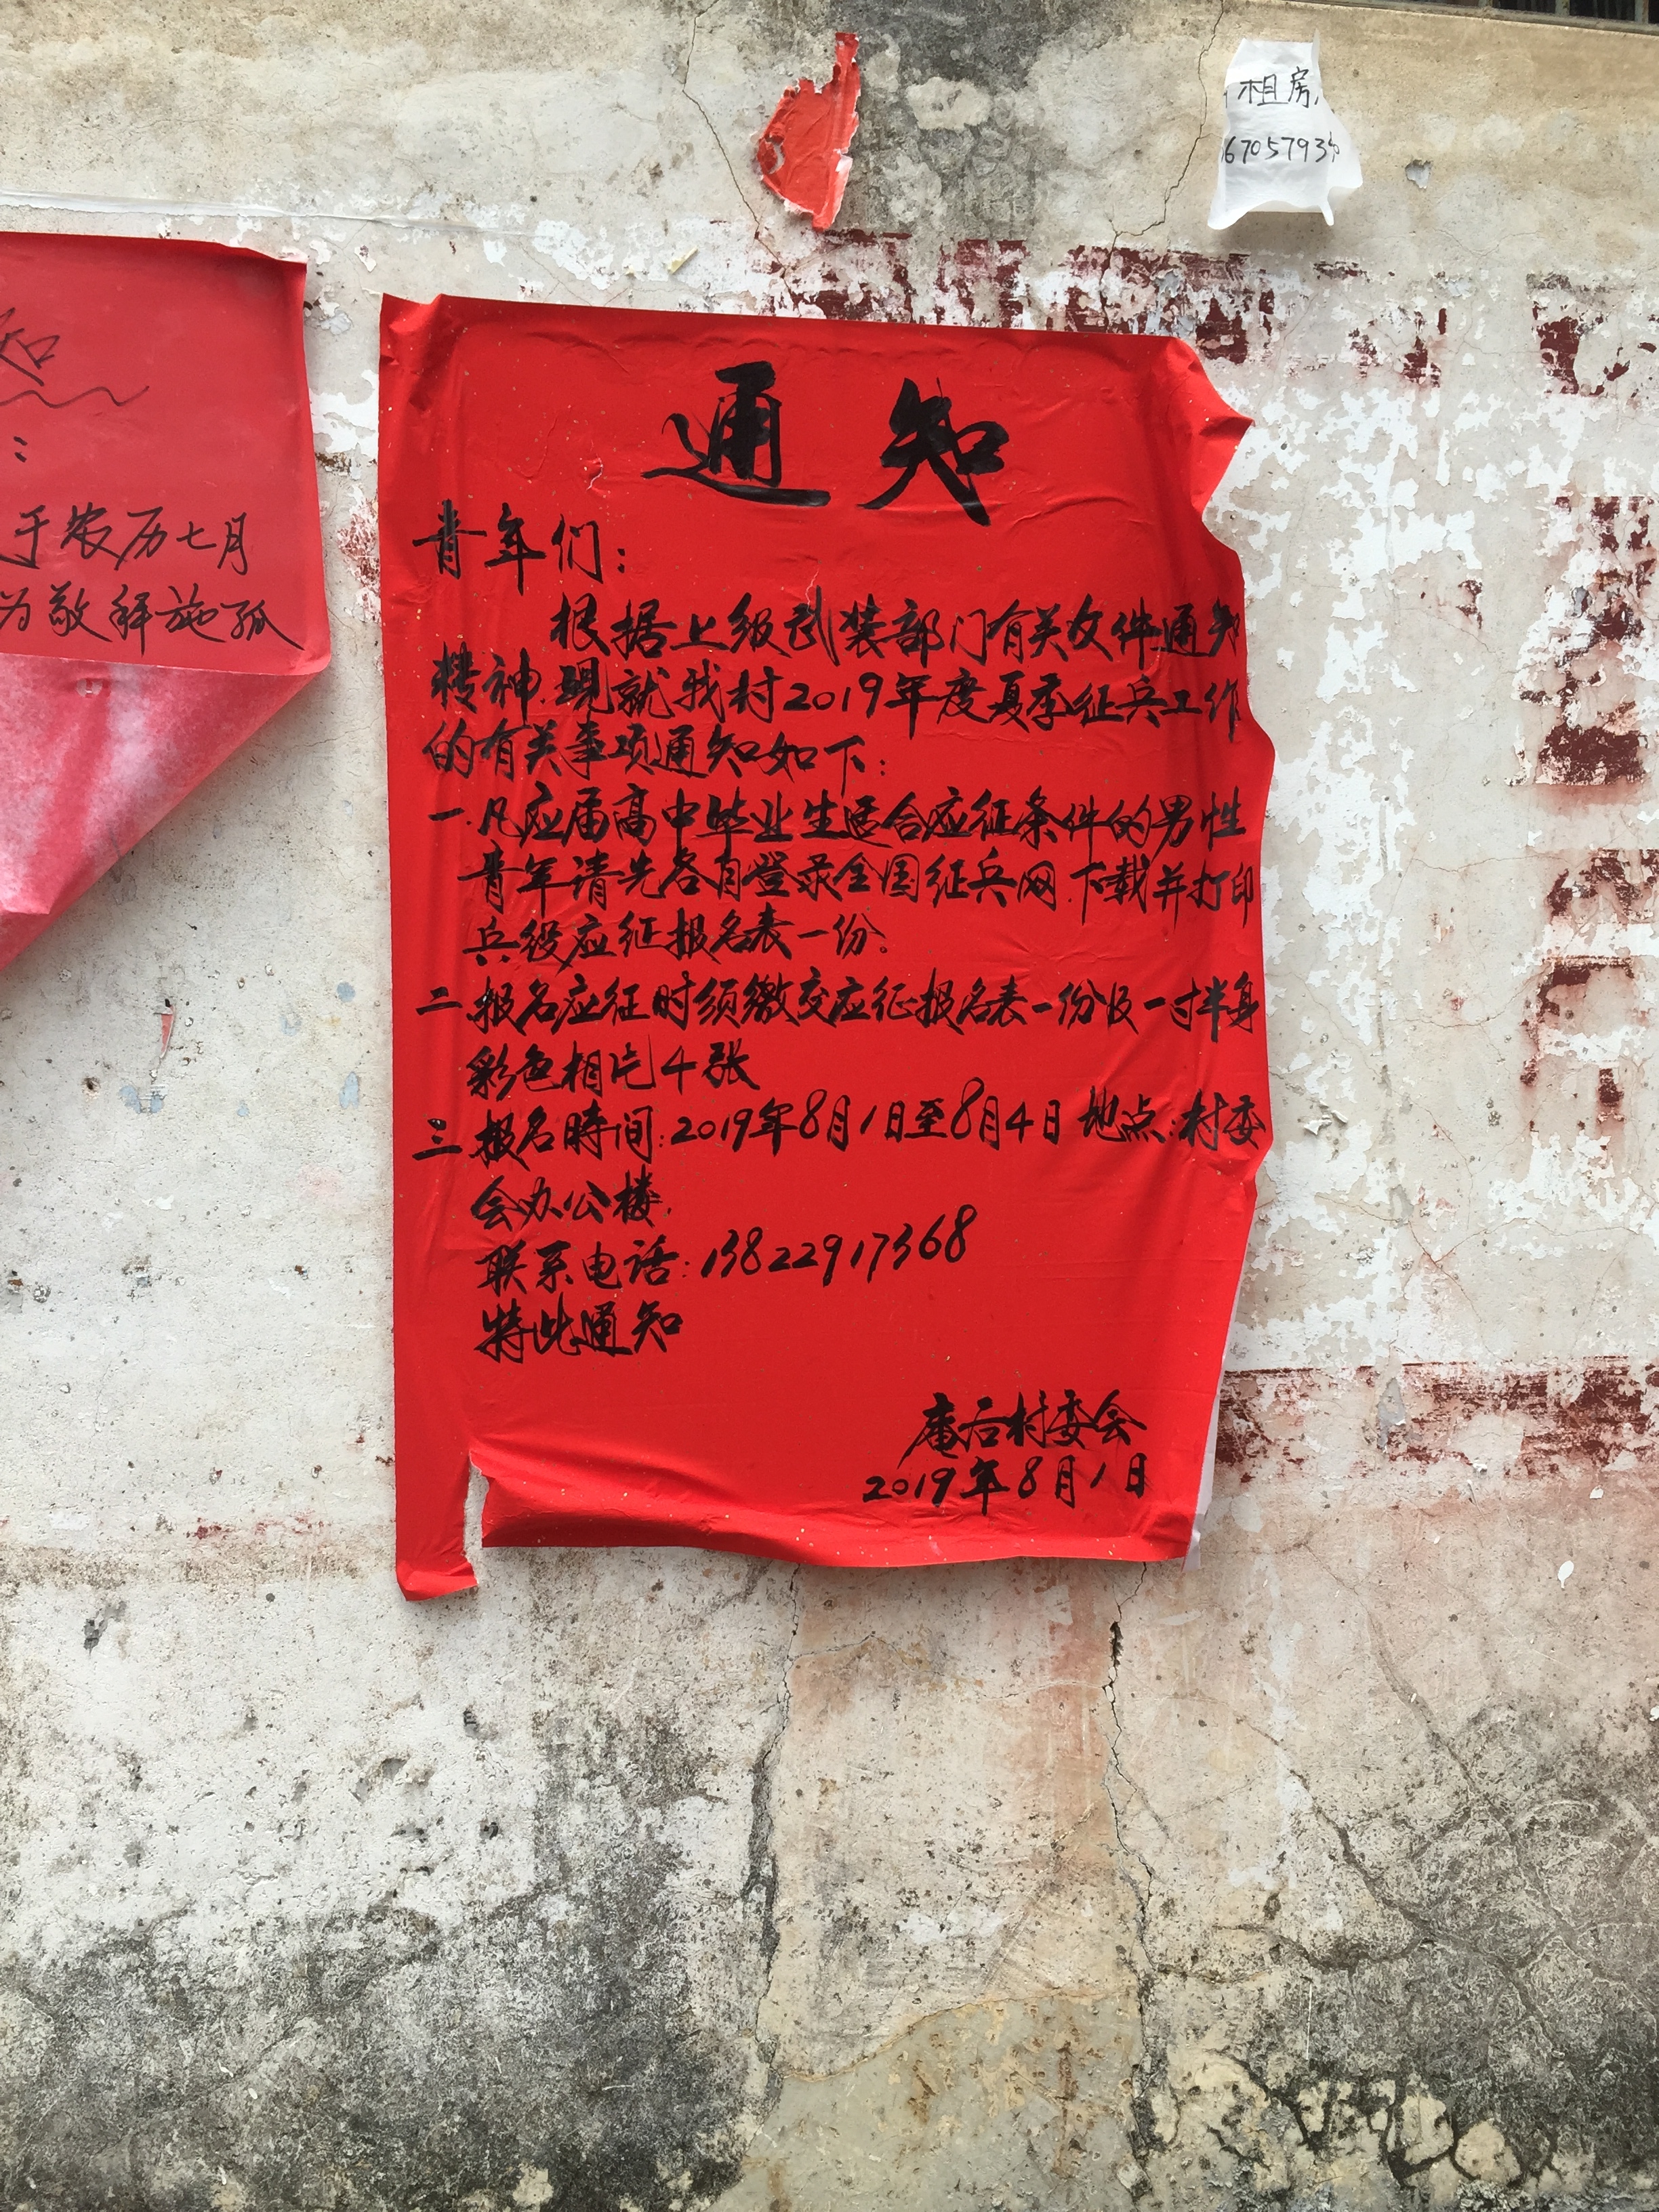 租房
67057934
知
:
于农历七月
为敬释施孤
通知
青年们:
根据上级武装部门有关文件通知
精神.现就我村2019年度夏季征兵工作
的有关事项通知如下:
一.凡应届高中毕业生适合应征条件的男性
青年请先各自登录全国征兵网.下载并打印
兵役应征报名表一份。
二.报名应征时须缴交应征报名表一份及一寸半身
彩色相片4张
三.报名時间:2019年8月1日至8月4日 地点:村委
会办公楼.
联系电话:13822917368
特此通知
庵后村委会
2019年8月1日